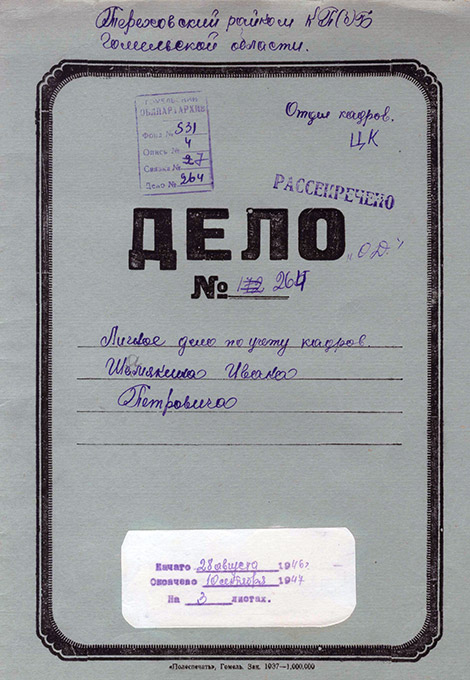 Тереховский райком КП(б)Б
Гомельской области.
ОБЛПАРТАРХИВ
Фонд № 531
Опись № 4
Связка № 27
Дело № 264
Отдел кадров.
ЦК
РАССЕКРЕЧЕНО
ДЕЛО
„О.Д.“
№ 264
Личное дело по учету кадров.
Шамякина Ивана
Петровича
Начато 28 августа 1946 г
Окончено 10 октября 1947
На 3 листах.
«Полеспечать», Гомель. Зак. 1937—1,000,000